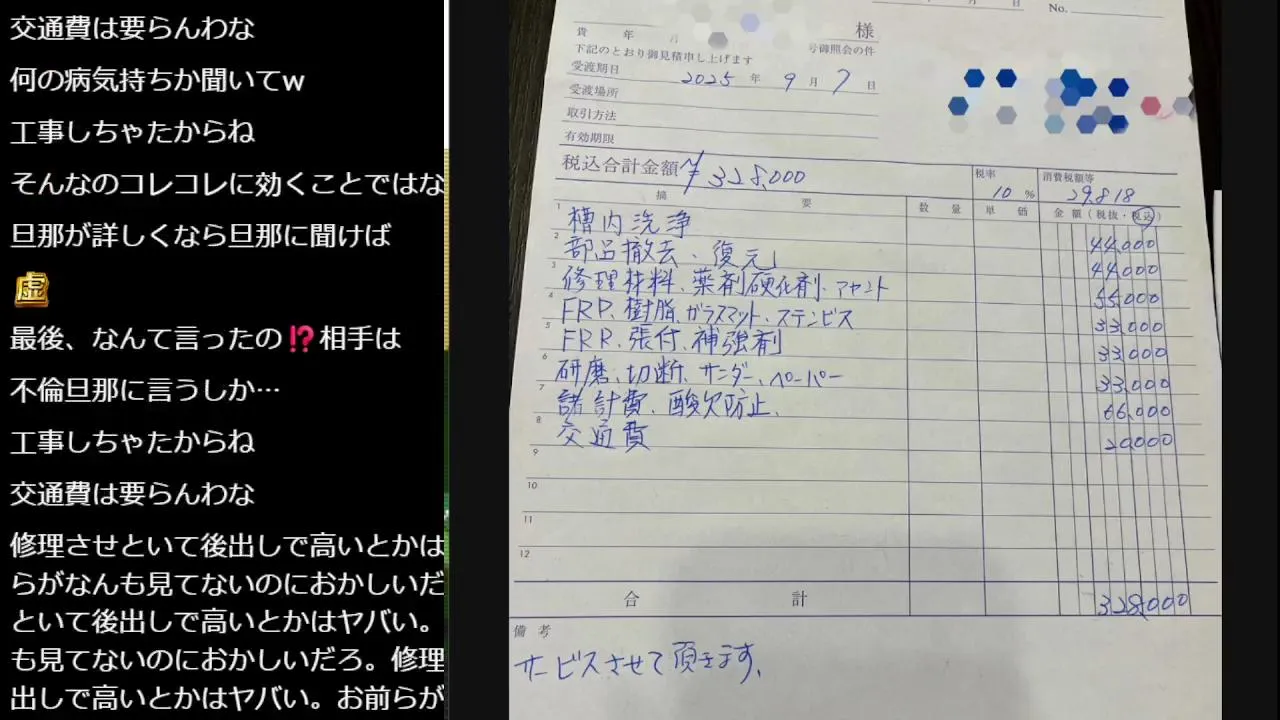 交通費は要らんわな
何の病気持ちか聞いてw
工事しちゃたからね
そんなのコレコレに効くことではな
旦那が詳しくなら旦那に聞けば
虚
最後、なんて言ったの⁉相手は
不倫旦那に言うしか…
工事しちゃたからね
交通費は要らんわな
修理させといて後出しで高いとかは
らがなんも見てないのにおかしいだ
といて後出しで高いとかはヤバい。
も見てないのにおかしいだろ。修理
出しで高いとかはヤバい。お前らが
月 日
No.
様
貴 年 月 号御照会の件
下記のとおり御見積申し上げます
受渡期日 2025 年 9 月 7 日
受渡場所
取引方法
有効期限
税込合計金額 ¥328,000
税率 10 %
消費税額等 29,818
摘 要 数 量 単 価 金 額 (税抜・税込)
1 槽内洗浄 44,000
2 部品撤去、復元 44,000
3 修理材料、薬剤硬化剤、アセント 55,000
4 FRP、樹脂、ガラスマット、ステンビス 33,000
5 FRP、張付、補強剤 33,000
6 研磨、切断、サンダー、ペーパー 33,000
7 諸計費、酸欠防止、 66,000
8 交通費 20,000
9
10
11
12
合 計 328,000
備 考
サービスさせて頂きます。